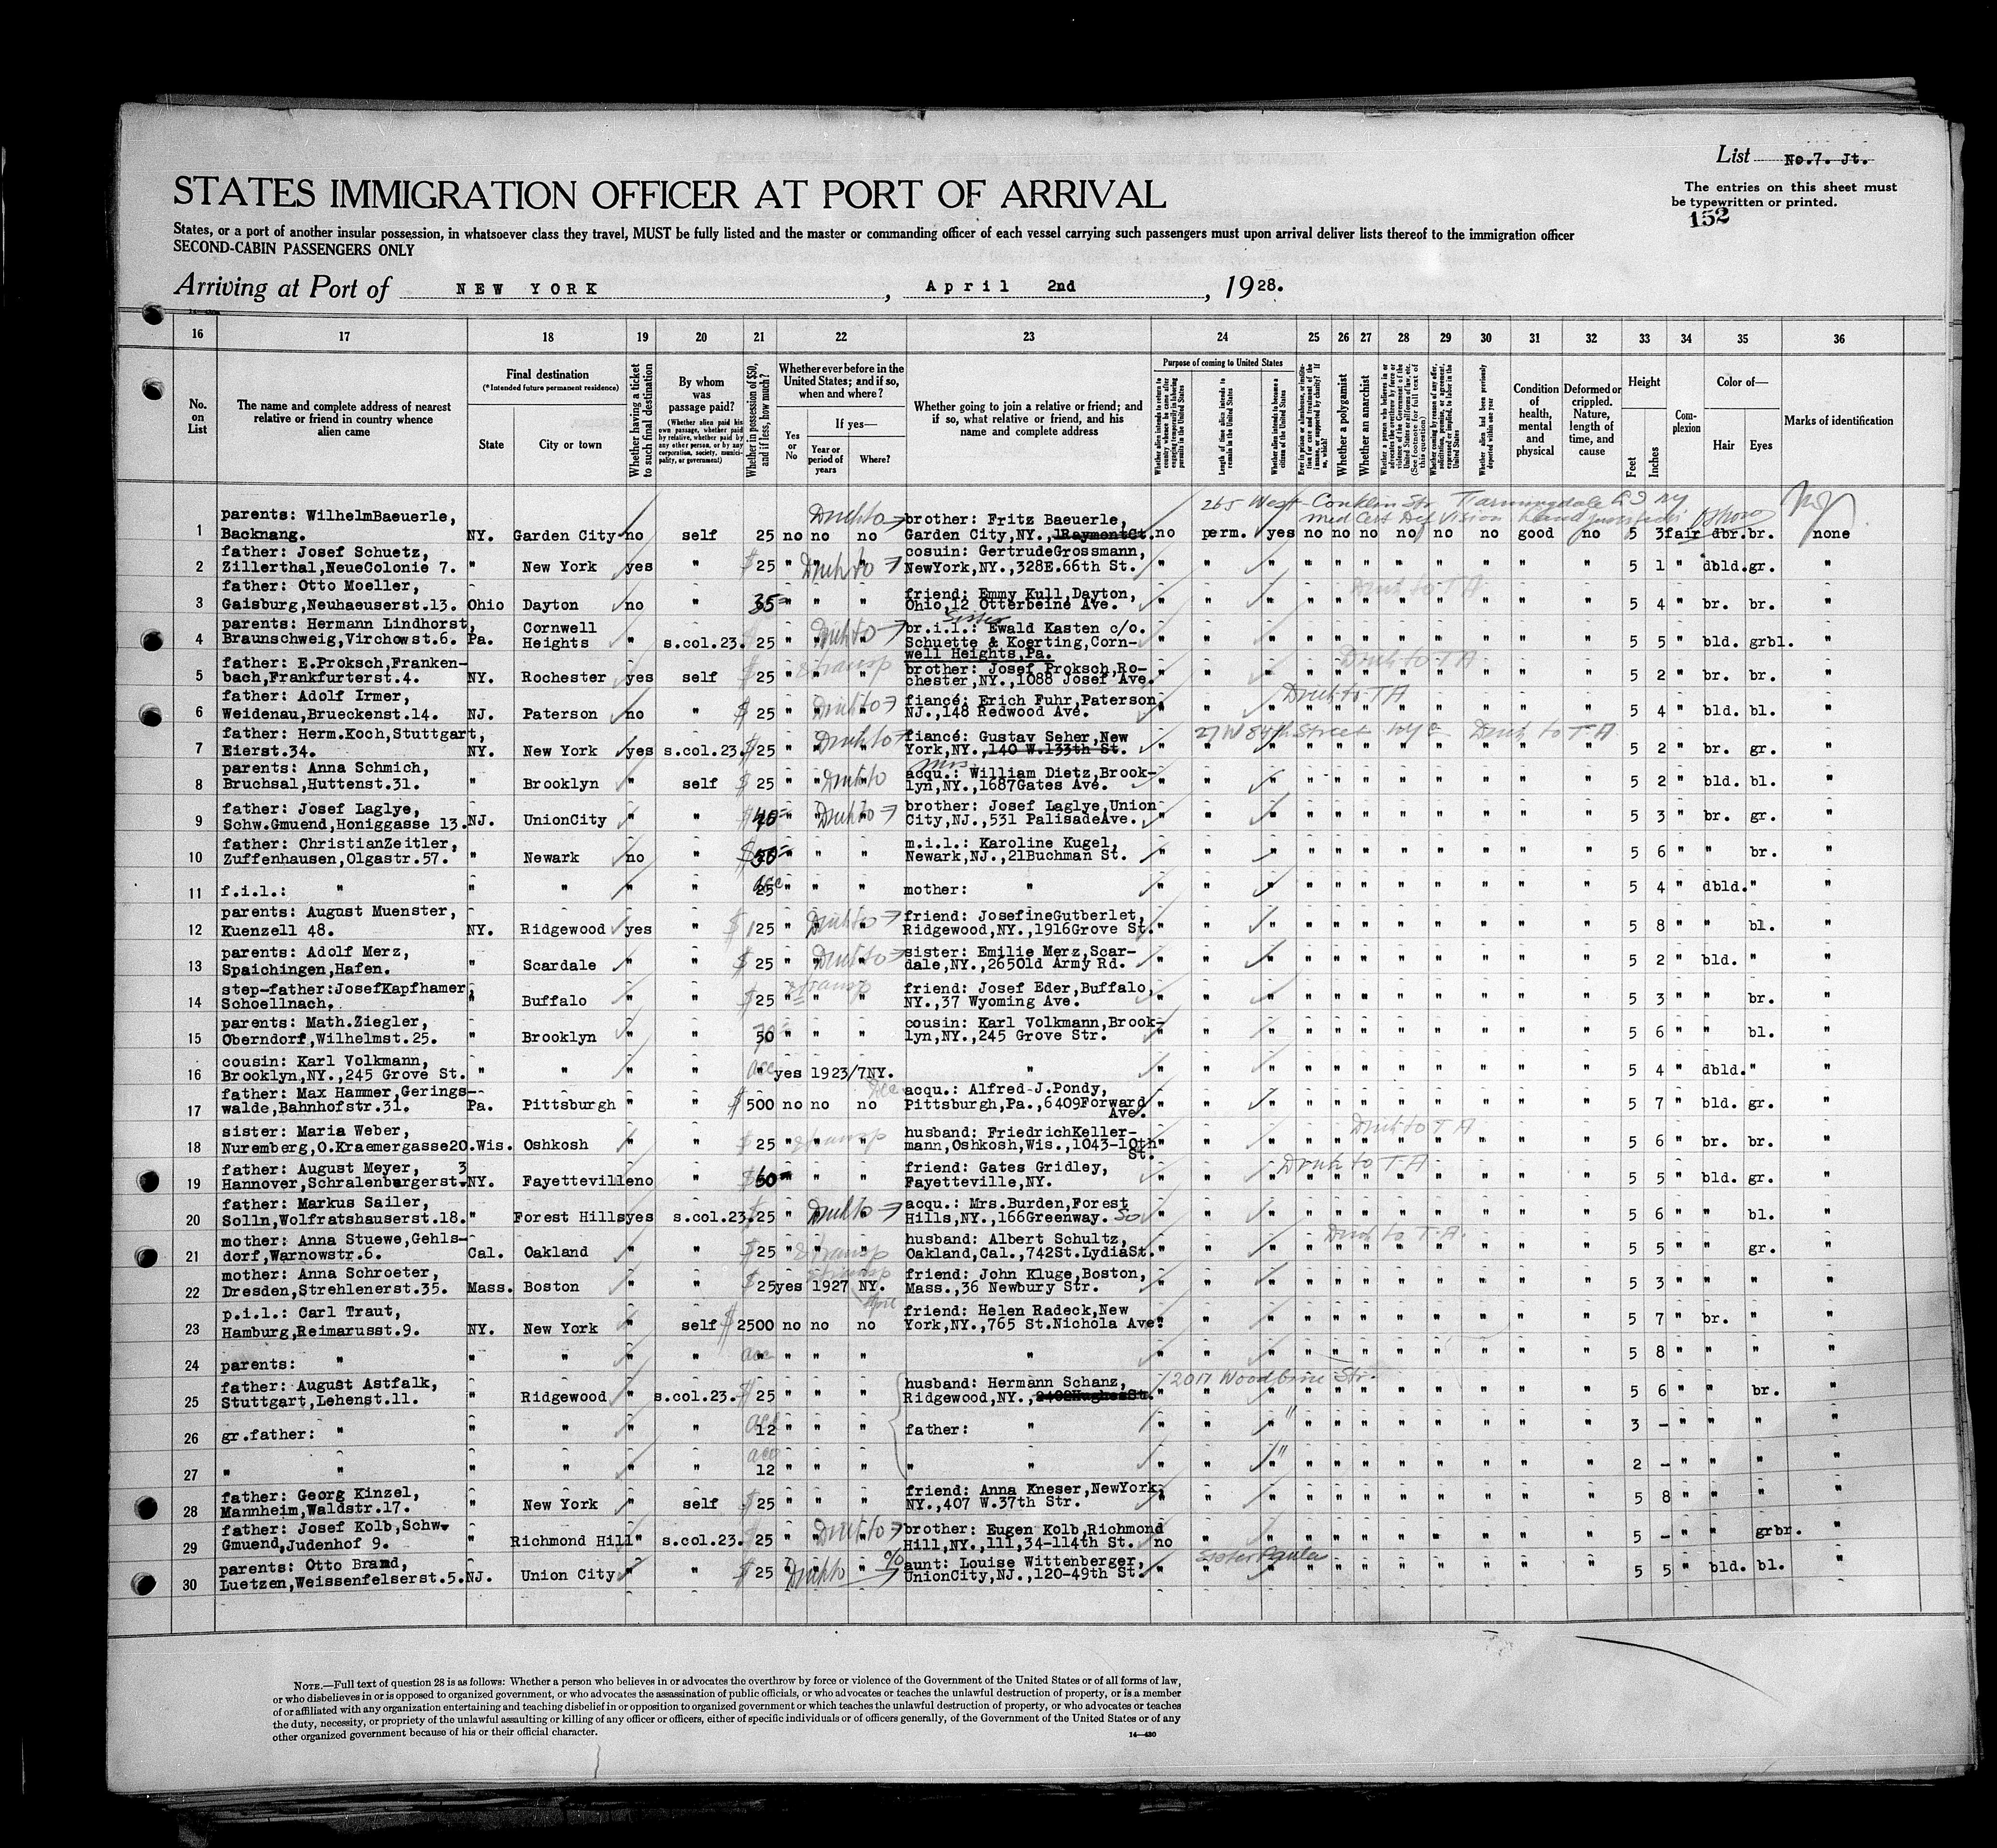 List No.7. Jt.
STATES IMMIGRATION OFFICER AT PORT OF ARRIVAL
The entries on this sheet must
be typewritten or printed.
152
States, or a port of another insular possession, in whatsoever class they travel, MUST be fully listed and the master or commanding officer of each vessel carrying such passengers must upon arrival deliver lists thereof to the immigration officer
SECOND-CABIN PASSENGERS ONLY
Arriving at Port of NEW YORK, April 2nd, 1928.
16 17 18 19 20 21 22 23 24 25 26 27 28 29 30 31 32 33 34 35 36
No. on List
The name and complete address of nearest relative or friend in country whence alien came
Final destination
(*Intended future permanent residence)
State
City or town
Whether having a ticket to such final destination
By whom was passage paid?
(Whether alien paid his own passage, whether paid by relative, whether paid by any other person, or by any corporation, society, municipality, or government)
Whether in possession of $50, and if less, how much?
Whether ever before in the United States; and if so, when and where?
Yes or No
If yes—
Year or period of years
Where?
Whether going to join a relative or friend; and if so, what relative or friend, and his name and complete address
Purpose of coming to United States
Length of time alien intends to remain in the United States
Whether alien intends to become a citizen of the United States
Whether a polygamist
Whether an anarchist
Condition of health, mental and physical
Deformed or crippled. Nature, length of time, and cause
Height
Feet
Inches
Complexion
Color of—
Hair
Eyes
Marks of identification
265 West Conklin Str Farmingdale
1 parents: WilhelmBaeuerle, Backnang. NY. Garden City no self 25 no no no brother: Fritz Baeuerle, Garden City,NY.,1RaymontCt. no perm. yes no no no no no no good no 5 3 fair dbr. br. none
2 father: Josef Schuetz, Zillerthal,NeueColonie 7. " New York yes " $25 " " " cosuin: GertrudeGrossmann, NewYork,NY.,328E.66th St. " " " " " " " " " " " 5 1 " dbld. gr. "
3 father: Otto Moeller, Gaisburg,Neuhaeuserst.13. Ohio Dayton no " 35 " " " friend: Emmy Kull,Dayton, Ohio,12 Otterbeine Ave. " " " " " " " " " " " 5 4 " br. br. "
4 parents: Hermann Lindhorst, Braunschweig,Virchowst.6. Pa. Cornwell Heights " s.col.23. 25 " " " Sister br.i.l.: Ewald Kasten c/o. Schuette & Koerting,Cornwell Heights,Pa. " " " " " " " " " " " 5 5 " bld. grbl. "
5 father: E.Proksch,Frankenbach,Frankfurterst.4. NY. Rochester yes self $25 " " " brother: Josef Proksch,Rochester,NY.,1088 Josef Ave. " " " " " " " " " " " 5 2 " br. br. "
6 father: Adolf Irmer, Weidenau,Brueckenst.14. NJ. Paterson no " $25 " " " fiancé: Erich Fuhr,Paterson NJ.,148 Redwood Ave. " " " " " " " " " " " 5 4 " bld. bl. "
7 father: Herm.Koch,Stuttgart, Eierst.34. NY. New York yes s.col.23. $25 " " " fiancé: Gustav Seher,New York,NY.,140 W.133th St. " 27 W 84th Street " " " " " " " " " " 5 2 " br. gr. "
8 parents: Anna Schmich, Bruchsal,Huttenst.31. " Brooklyn " self $25 " " " Mrs. acqu.: William Dietz,Brooklyn,NY.,1687Gates Ave. " " " " " " " " " " " 5 2 " bld. bl. "
9 father: Josef Laglye, Schw.Gmuend,Honiggasse 13. NJ. UnionCity " " $40 " " " brother: Josef Laglye,Union City,NJ.,531 PalisadeAve. " " " " " " " " " " " 5 3 " br. gr. "
10 father: ChristianZeitler, Zuffenhausen,Olgastr.57. " Newark no " $50 " " " m.i.l.: Karoline Kugel, Newark,NJ.,21Buchman St. " " " " " " " " " " " 5 6 " " br. "
11 f.i.l.: " " " " " 25 " " " mother: " " " " " " " " " " " " 5 4 " dbld. " "
12 parents: August Muenster, Kuenzell 48. NY. Ridgewood yes " $125 " " " friend: JosefineGutberlet, Ridgewood,NY.,1916Grove St. " " " " " " " " " " " 5 8 " " bl. "
13 parents: Adolf Merz, Spaichingen,Hafen. " Scardale " " $25 " " " sister: Emilie Merz,Scardale,NY.,265Old Army Rd. " " " " " " " " " " " 5 2 " bld. " "
14 step-father:JosefKapfhamer, Schoellnach. " Buffalo " " $25 " " " friend: Josef Eder,Buffalo, NY.,37 Wyoming Ave. " " " " " " " " " " " 5 3 " " br. "
15 parents: Math.Ziegler, Oberndorf,Wilhelmst.25. " Brooklyn " " 50 " " " cousin: Karl Volkmann,Brooklyn,NY.,245 Grove Str. " " " " " " " " " " " 5 6 " " bl. "
16 cousin: Karl Volkmann, Brooklyn,NY.,245 Grove St. " " " " " yes 1923/7 NY. " " " " " " " " " " " " 5 4 " dbld. " "
17 father: Max Hammer,Geringswalde,Bahnhofstr.31. Pa. Pittsburgh " " $500 no no no acqu.: Alfred J.Pondy, Pittsburgh,Pa.,6409Forward Ave. " " " " " " " " " " " 5 7 " bld. gr. "
18 sister: Maria Weber, Nuremberg,O.Kraemergasse20. Wis. Oshkosh " " $25 " " " husband: FriedrichKellermann,Oshkosh,Wis.,1043-10th St. " " " " " " " " " " " 5 6 " br. br. "
19 father: August Meyer, 3 Hannover,Schralenburgerst. NY. Fayettevill eno 60 " " " friend: Gates Gridley, Fayetteville,NY. " " " " " " " " " " " 5 5 " bld. gr. "
20 father: Markus Sailer, Solln,Wolfratshauserst.18. " Forest Hills yes s.col.23. 25 " " " acqu.: Mrs.Burden,Forest Hills,NY.,166Greenway. So " " " " " " " " " " " 5 6 " " bl. "
21 mother: Anna Stuewe,Gehlsdorf,Warnowstr.6. Cal. Oakland " " $25 " " " husband: Albert Schultz, Oakland,Cal.,742St.LydiaSt. " " " " " " " " " " " 5 5 " " gr. "
22 mother: Anna Schroeter, Dresden,Strehlenerst.35. Mass. Boston " " $25 yes 1927 NY. friend: John Kluge,Boston, Mass.,36 Newbury Str. " " " " " " " " " " " 5 3 " " " "
23 p.i.l.: Carl Traut, Hamburg,Reimarusst.9. NY. New York " self $2500 no no no friend: Helen Radeck,New York,NY.,765 St.Nichola Ave. " " " " " " " " " " " 5 7 " br. " "
24 parents: " " " " " " " " " " " " " " " " " " " " " " 5 8 " " " "
25 father: August Astfalk, Stuttgart,Lehenst.11. " Ridgewood " s.col.23. 25 " " " husband: Hermann Schanz, Ridgewood,NY., 2017 Woodbine Str. " " " " " " " " " " " 5 6 " " br. "
26 gr.father: " " " " " 12 " " " father: " " " " " " " " " " " " 3 - " " " "
27 " " " " " " 12 " " " " " " " " " " " " " " " " 2 - " " " "
28 father: Georg Kinzel, Mannheim,Waldstr.17. " New York " self $25 " " " friend: Anna Kneser,NewYork, NY.,407 W.37th Str. " " " " " " " " " " " 5 8 " " " "
29 father: Josef Kolb,Schw. Gmuend,Judenhof 9. " Richmond Hill " s.col.23. 25 " " " brother: Eugen Kolb,Richmond Hill,NY.,111,34-114th St. no " " " " " " " " " " 5 - " " grbr. "
30 parents: Otto Brand, Luetzen,Weissenfelserst.5. NJ. Union City " " $25 " c/o aunt: Louise Wittenberger, UnionCity,NJ.,120-49th St. Sister Paula " " " " " " " " " " " 5 5 " bld. bl. "
NOTE.—Full text of question 28 is as follows: Whether a person who believes in or advocates the overthrow by force or violence of the Government of the United States or of all forms of law,
or who disbelieves in or is opposed to organized government, or who advocates the assassination of public officials, or who advocates or teaches the unlawful destruction of property, or is a member
of or affiliated with any organization entertaining and teaching disbelief in or opposition to organized government or which teaches the unlawful destruction of property, or who advocates or teaches
the duty, necessity, or propriety of the unlawful assaulting or killing of any officer or officers, either of specific individuals or of officers generally, of the Government of the United States or of any
other organized government because of his or their official character.
14—430